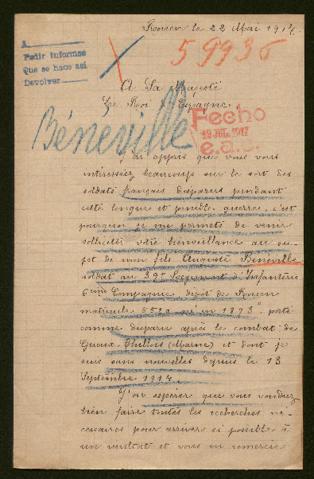 Rouen le 22 Mai 1917
A
Pedir informes
Que se hace así
Devolver
59936
A Sa Majesté
Le Roi d'Espagne
Fecho
1917
e.a.s.
Béneville
J'ai appris que vous vous
intéressiez beaucoup sur le sort des
soldats français disparus pendant
cette longue et pénible guerre, c'est
pourquoi je me permets de venir
solliciter votre bienveillance au su-
jet de mon fils Auguste Béneville
soldat au 39e Régiment d'Infanterie
Compagnie dépôt de Rouen
matricule né en 1893 porté
comme disparu après le combat de
(Marne) et dont je
suis sans nouvelles depuis le 13
Septembre 1914.
J'ose espérer que vous voudrez
bien faire toutes les recherches né-
cessaires pour arriver si possible à
un résultat et vous en remercie